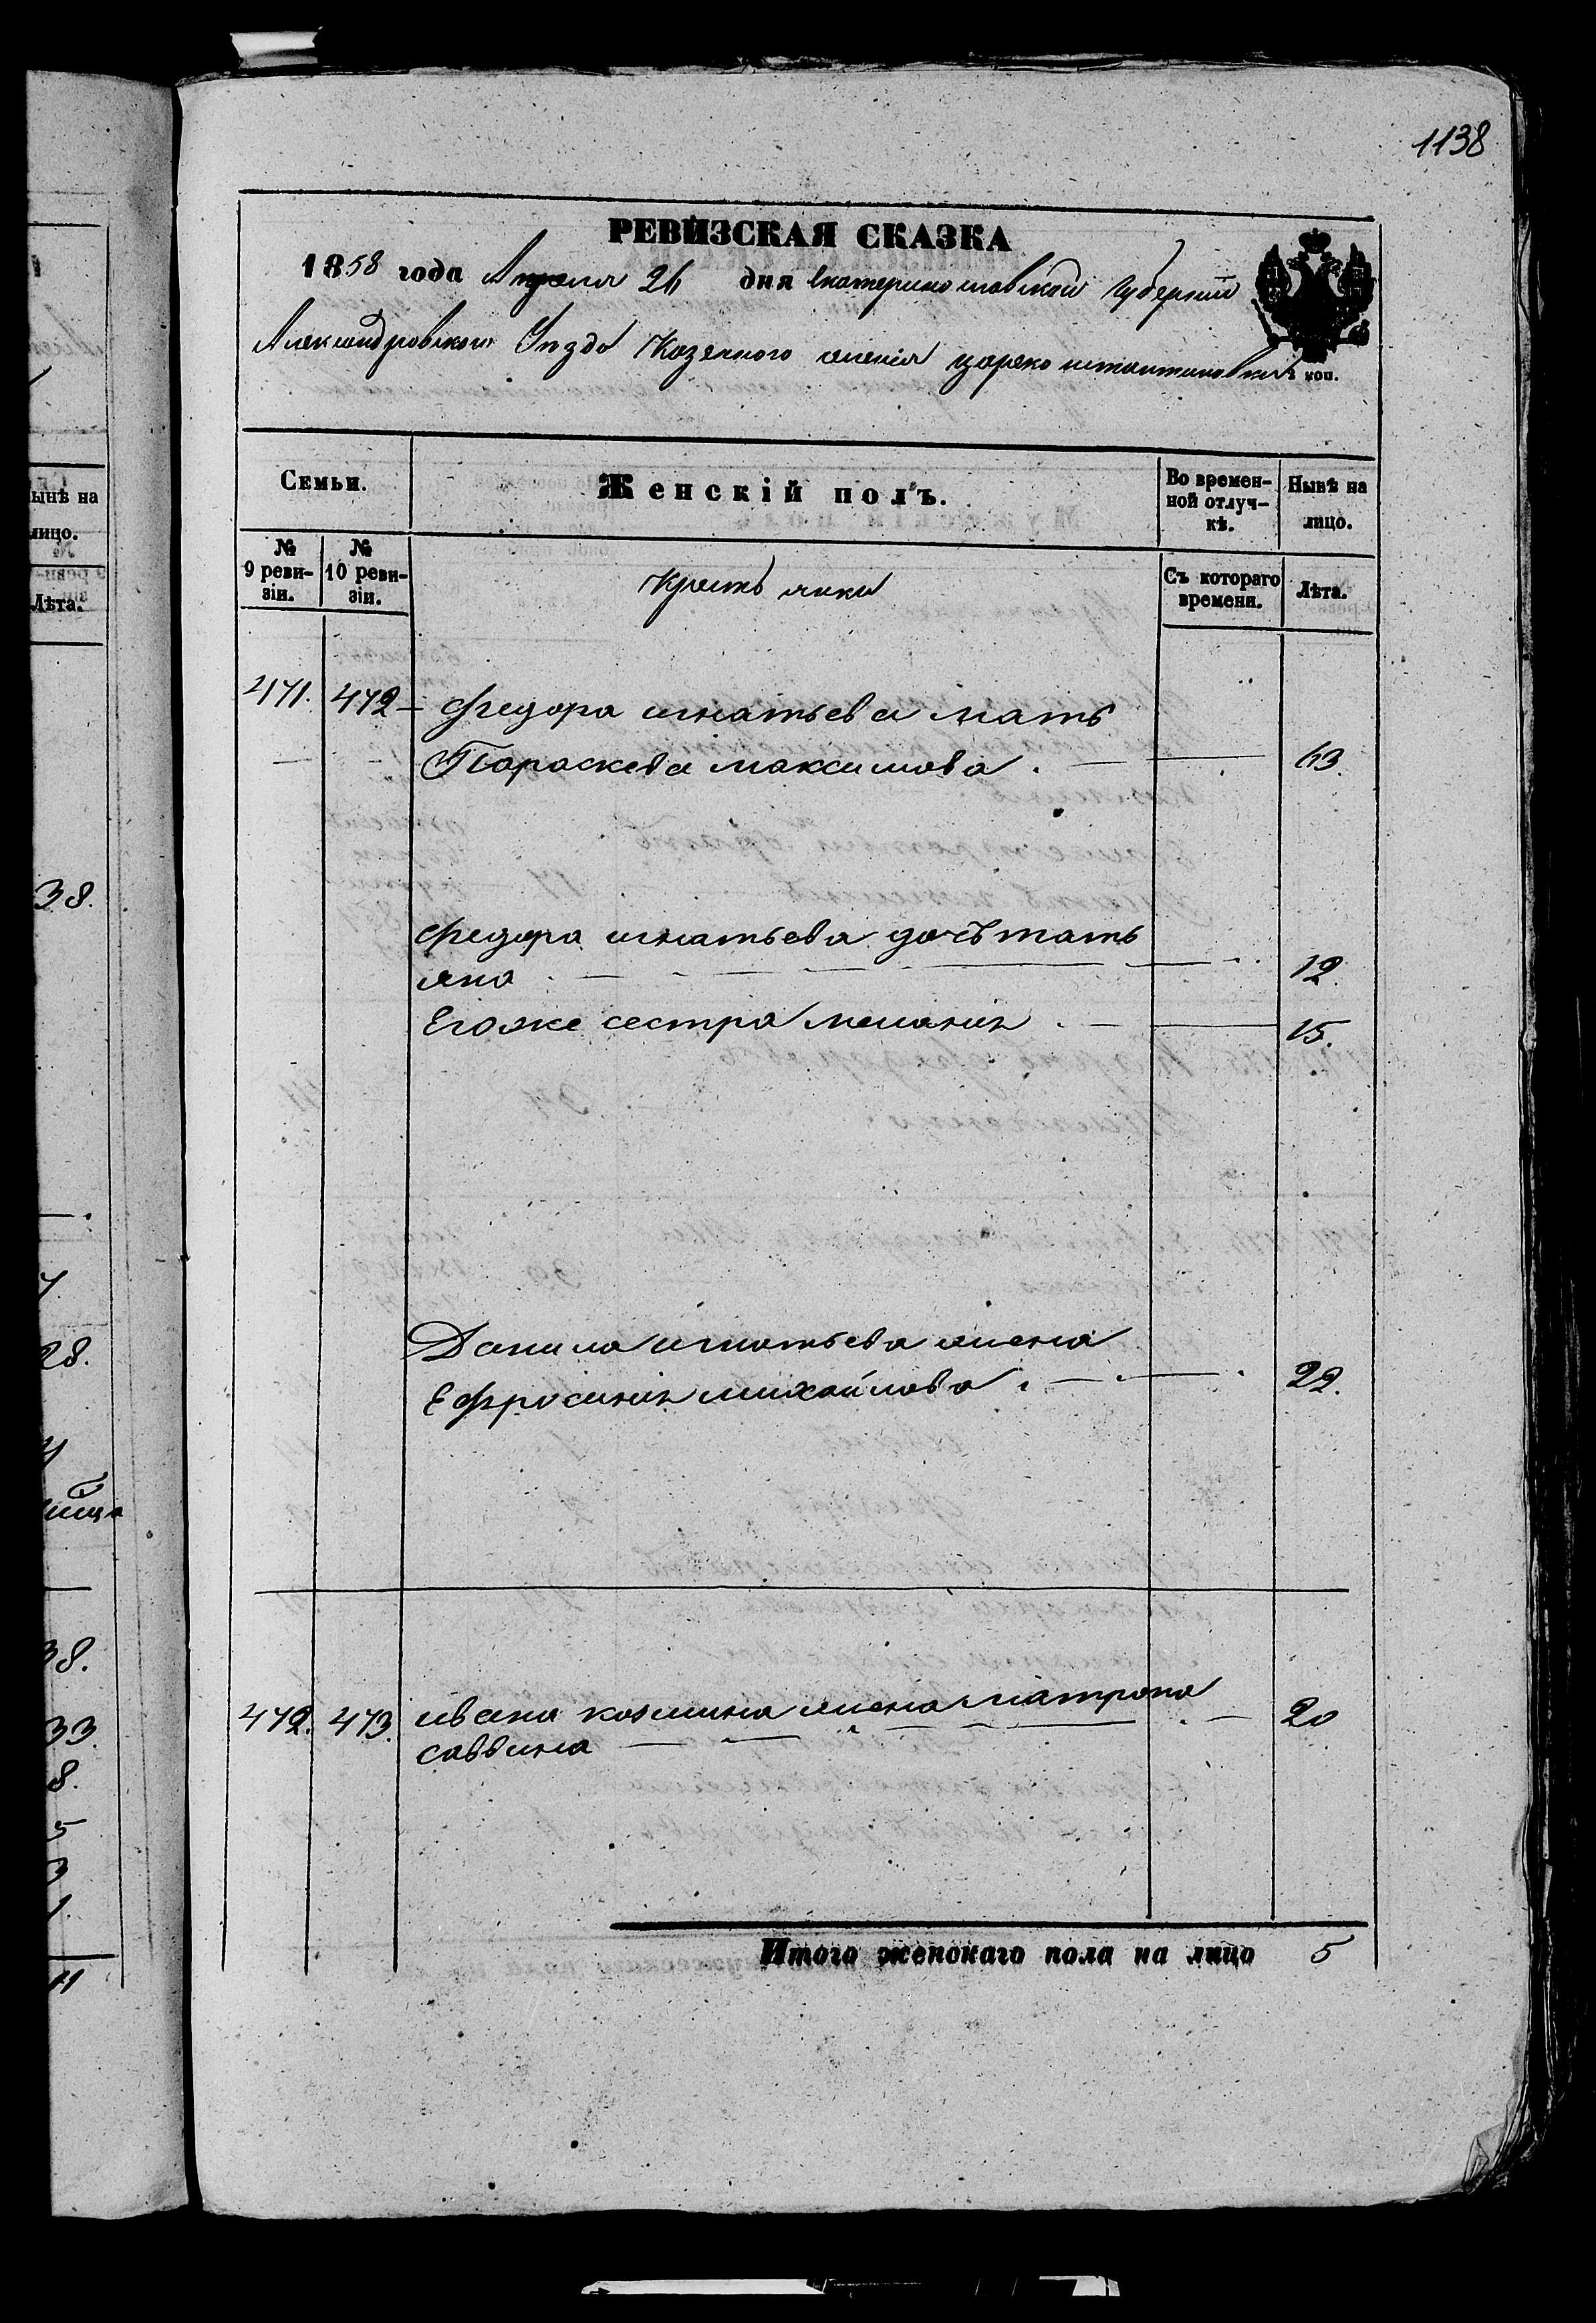 1138
РЕВИЗСКАЯ СКАЗКА
1858 года Апреля 26 дня Екатеринославской Губернии
Александровского Уезда Казенного селенія Цареконстантиновки
2 коп.
Семьи.
Женскій полъ.
Во времен-
ной отлуч-
кѣ.
Нынѣ на
лицо.
№
9 реви-
зіи.
№
10 реви-
зіи.
Крестьянки
Съ котораго
времени.
Лѣта.
471. 472 Федора игнатьева мать
Параскева максимова . 63.
Федора игнатьева дочь тать
яна 12.
Егоже сестра меланія . 15.
Данила игнатьева жена
Ефросинія михайлова . 22.
472. 473. ивана козмина жена матрона 20
саввина
Итого женскаго пола на лицо 5
ынѣ на
лицо.
Лѣта.
38.
28.
38.
33.
8.
5
3
1.
11